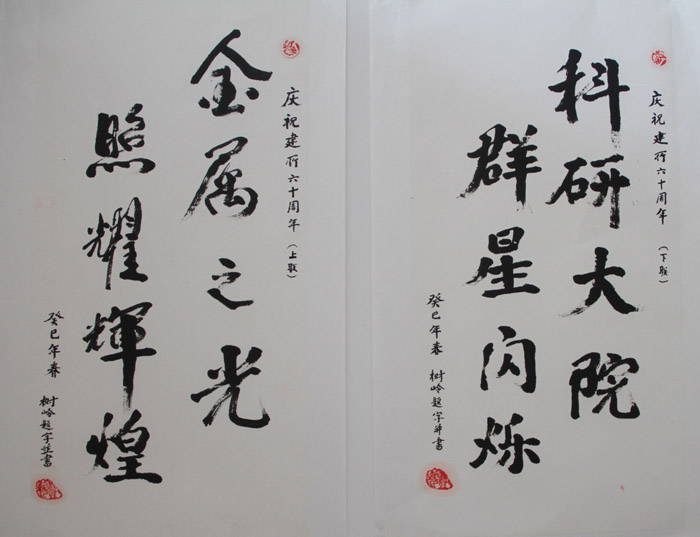 庆祝建所六十周年（上联）
金属之光
照耀輝煌
癸巳年春
树岭题字並書
庆祝建所六十周年（下联）
科研大院
群星闪烁
癸巳年春
树岭题字并書